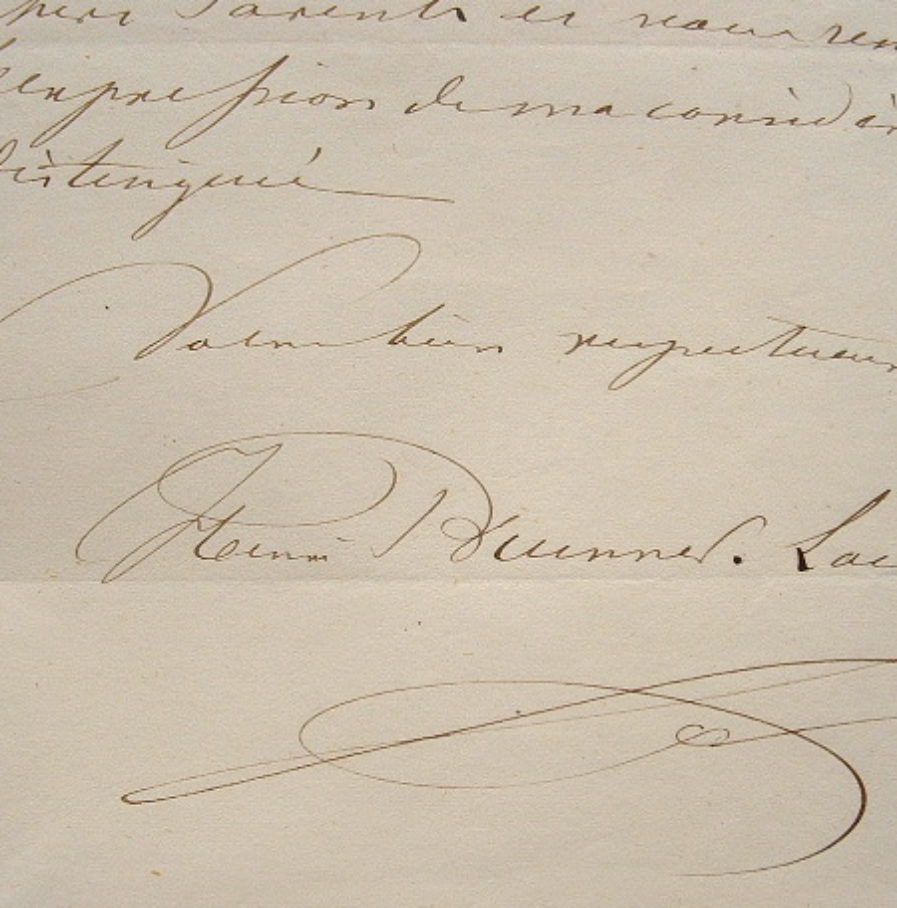 chers Parents et vous ren
l'expression de ma considér
distinguée
Votre bien respectueux
Henri Brunner. Loc